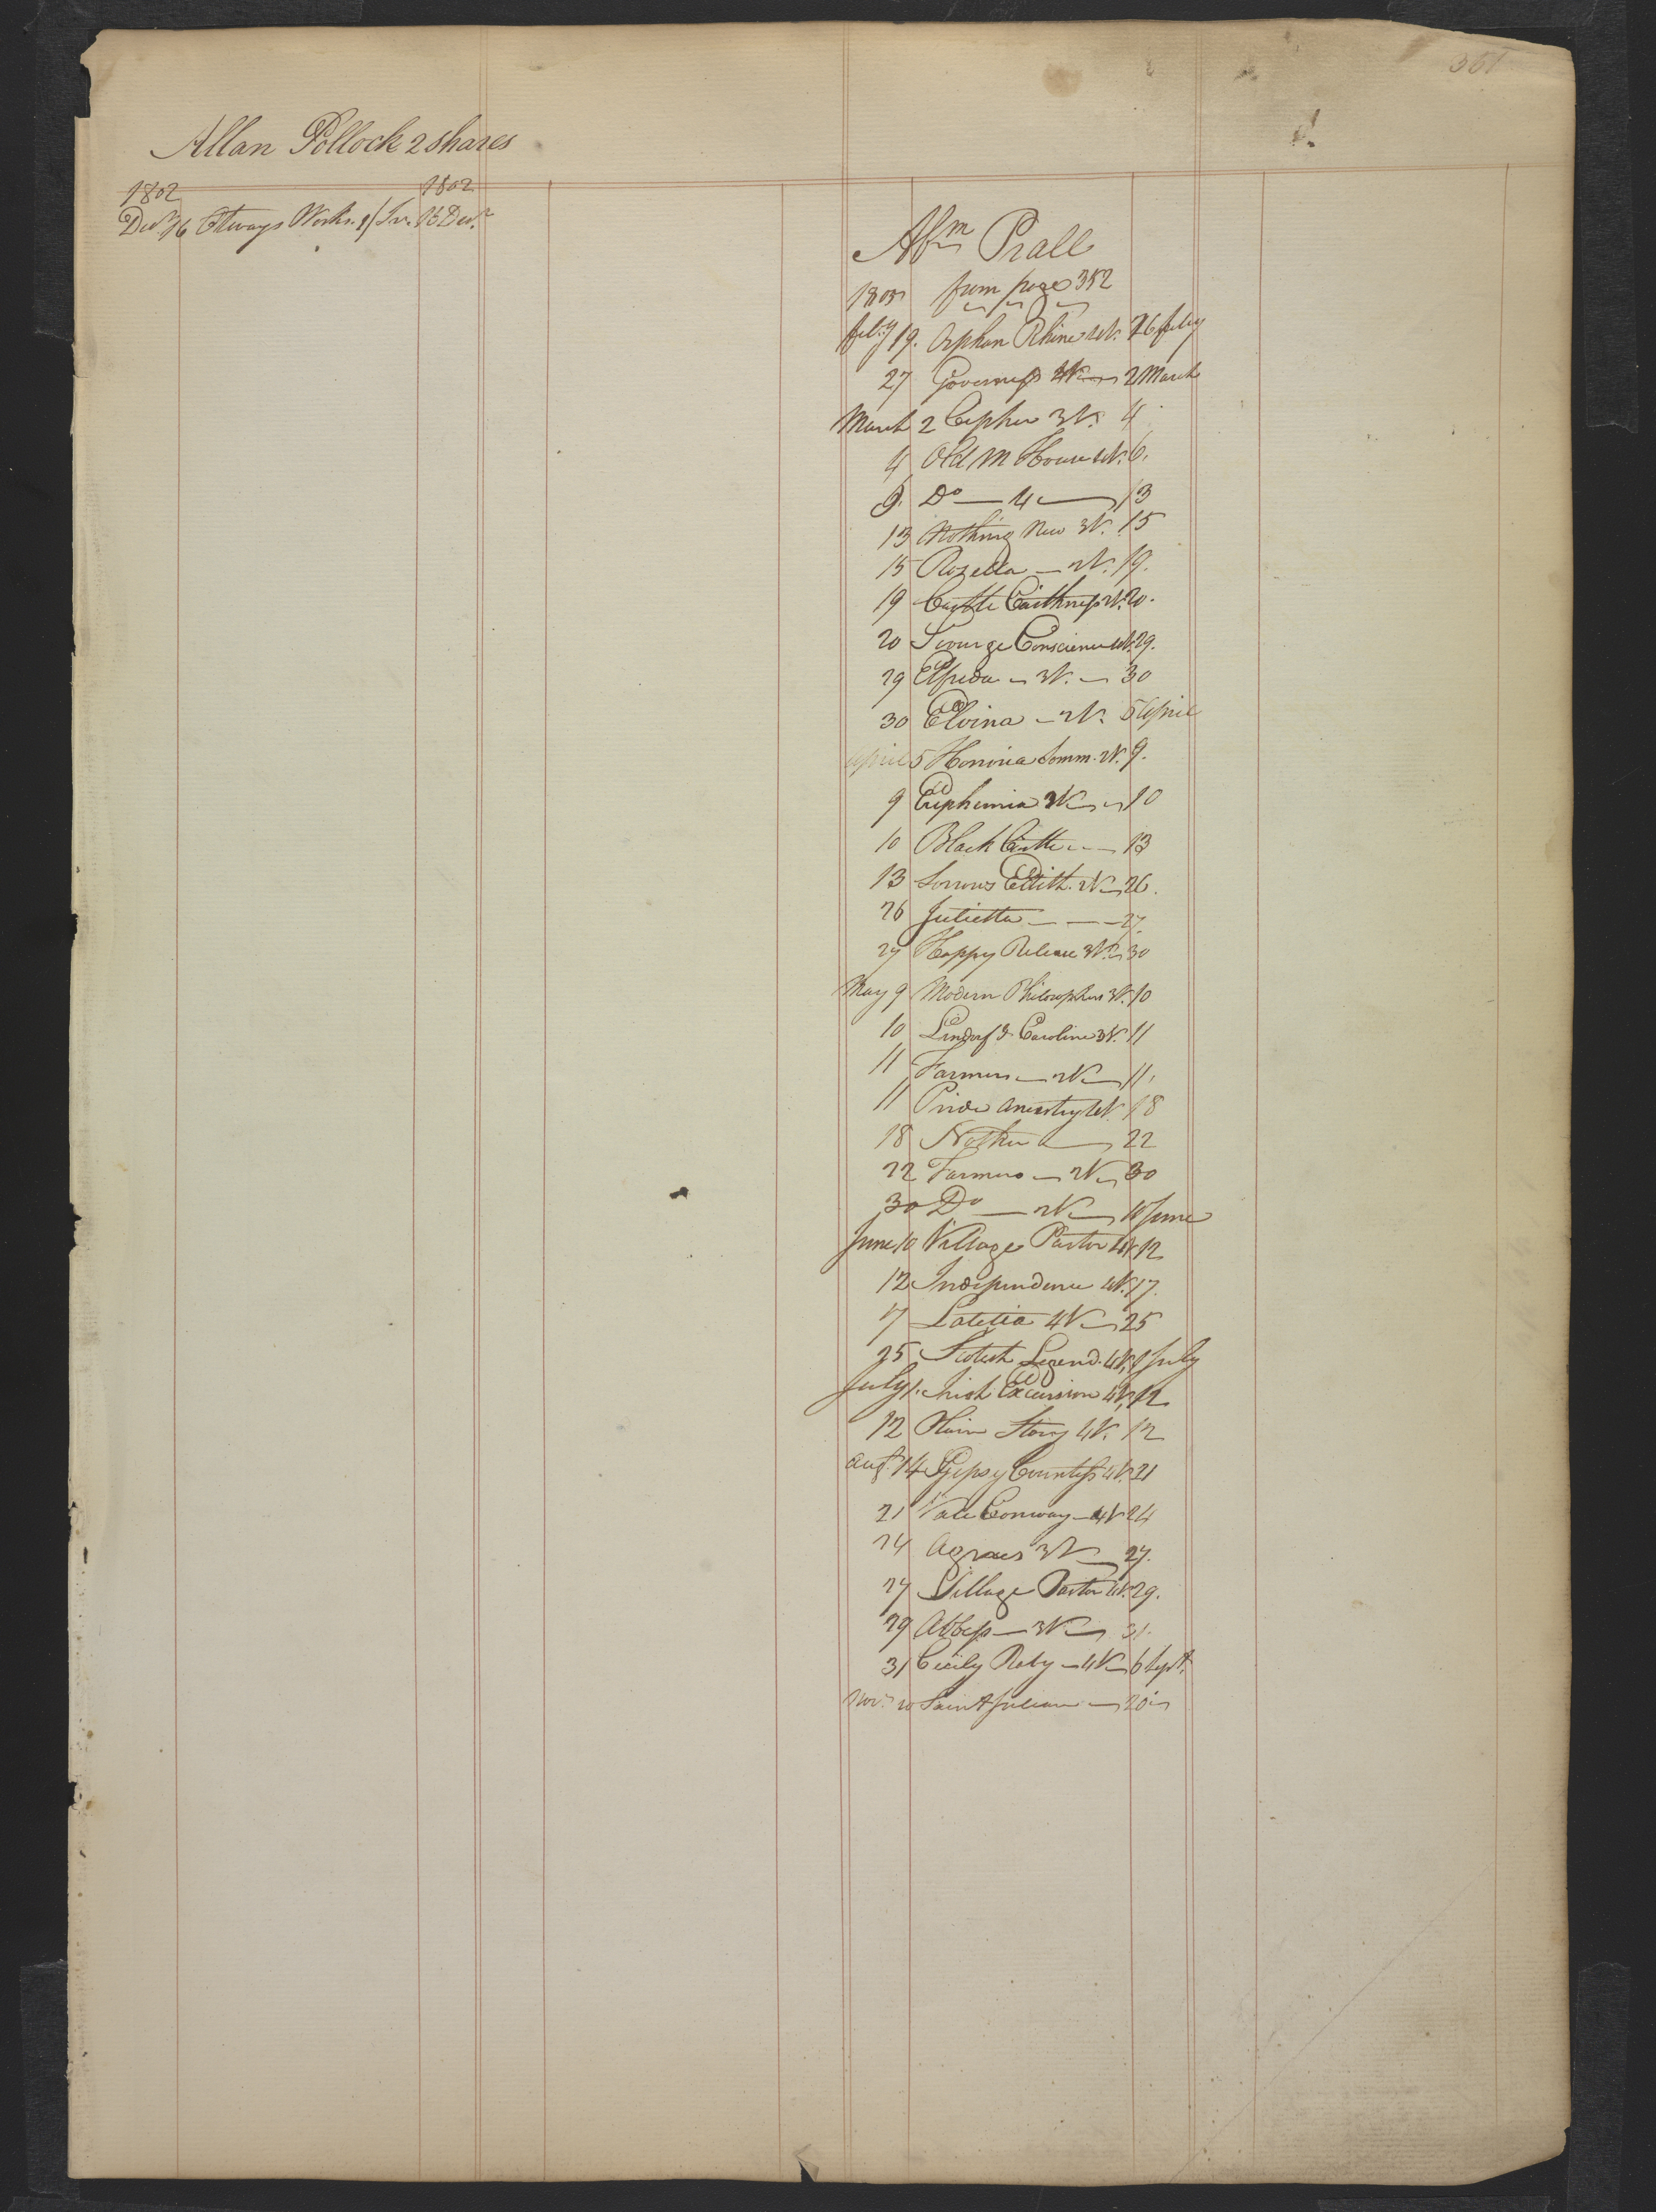 361
Allan Pollock 2 shares
1802 1802
Decr 16 Otways Works. 1/Sv. 16 Decr
Abm Prall
1805 from page 352
feby 19. Orphan Rhine 4V. 26 feby
27 Governess 4V 2 March
March 2 Cepher 3V. 4
4 Old M House 4V. 6.
9. Do — 4 — 13
13 Nothing New 3V. 15
15 Rozella — 2V. 19.
19 Castle Caithness 2V. 20.
20 Scourge Conscience 4V. 29.
29 Elfrida — 3V. — 30
30 Elvina — 2V. 5 April
April 5 Honoria Somm. 2V. 9.
9 Euphemia 3V — 10
10 Black Castle — 13
13 Sorrows Edith. 2V — 26.
26 Julietta — — — 27.
27 Happy Release 3V. 30
May 9 Modern Philosophers 3V. 10
10 Lindorf & Caroline 3V. 11
11 Farmers — 2V — 11.
11 Pride Ancestry 4V. 18
18 22
22 Farmers — 2V — 30
30 Do — 2V — 10 June
June 10 Village Pastor 4V 12
12 Independence 4V. 17.
17 Latitia 4V — 25
25 Scotish Legend. 4V. 1 July
July 1. Irish Excursion 4V. 12
12 Plain Story 4V. 12
Augt. 14 Gipsy Countess 4V. 21
21 Vale Conway — 4V 24
24 Agnes 3V — 27.
27 Village Pastor 4V. 29.
29 Abbess — 3V — 31.
31 Cicily Raby — 4V — 6 Sept.
Novr. 20 Saint Julian — 20